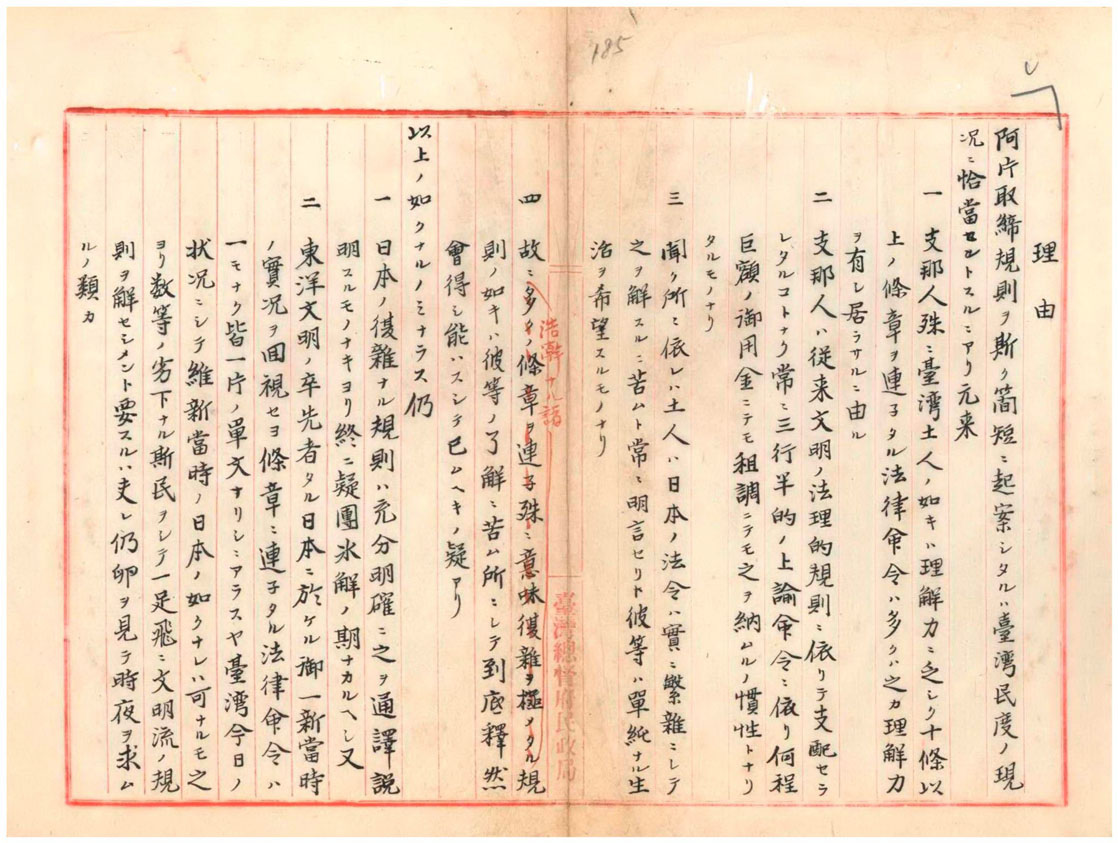 185
理由
阿片取締規則ヲ斯ク簡短ニ起案シタルハ臺湾民度ノ現
况ニ恰當セントスルニアリ元来
一 支那人殊ニ臺湾土人ノ如キハ理解力ニ乏シク十條以
上ノ條章ヲ連子タル法律命令ハ多クハ之カ理解力
ヲ有シ居ラサルニ由ル
二 支那人ハ従来文明ノ法理的規則ニ依リテ支配セラ
レタルコトナク常ニ三行半的ノ上諭命令ニ依リ何程
巨額ノ御用金ニテモ租調ニテモ之ヲ納ムルノ慣性トナリ
タルモノナリ
三 聞ク所ニ依レハ土人ハ日本ノ法令ハ實ニ繁雑ニシテ
之ヲ解スルニ苦ムト常ニ明言セリト彼等ハ單純ナル生
活ヲ希望スルモノナリ
浩澣ナル語
臺灣總督府民政局
四 故ニ多クノ條章ヲ連子殊ニ意味復雑ヲ極メタル規
則ノ如キハ彼等ノ了解ニ苦ム所ニシテ到底釋然
會得シ能ハスシテ已ムヘキノ疑アリ
以上ノ如クナルノミナラス仍
一 日本ノ復雑ナル規則ハ充分明確ニ之ヲ通譯説
明スルモノナキヨリ終ニ疑團氷解ノ期ナカルヘシ又
二 東洋文明ノ卒先者タル日本ニ於ケル御一新當時
ノ實况ヲ回視セヨ條章ニ連子タル法律命令ハ
一モナク皆一片ノ單文ナリシニアラスヤ臺湾今日ノ
状况ニシテ維新當時ノ日本ノ如クナレハ可ナルモ之
ヨリ数等ノ劣下ナル斯民ヲシテ一足飛ニ文明流ノ規
則ヲ解セシメント要スルハ夫レ仍卵ヲ見テ時夜ヲ求ム
ルノ類カ